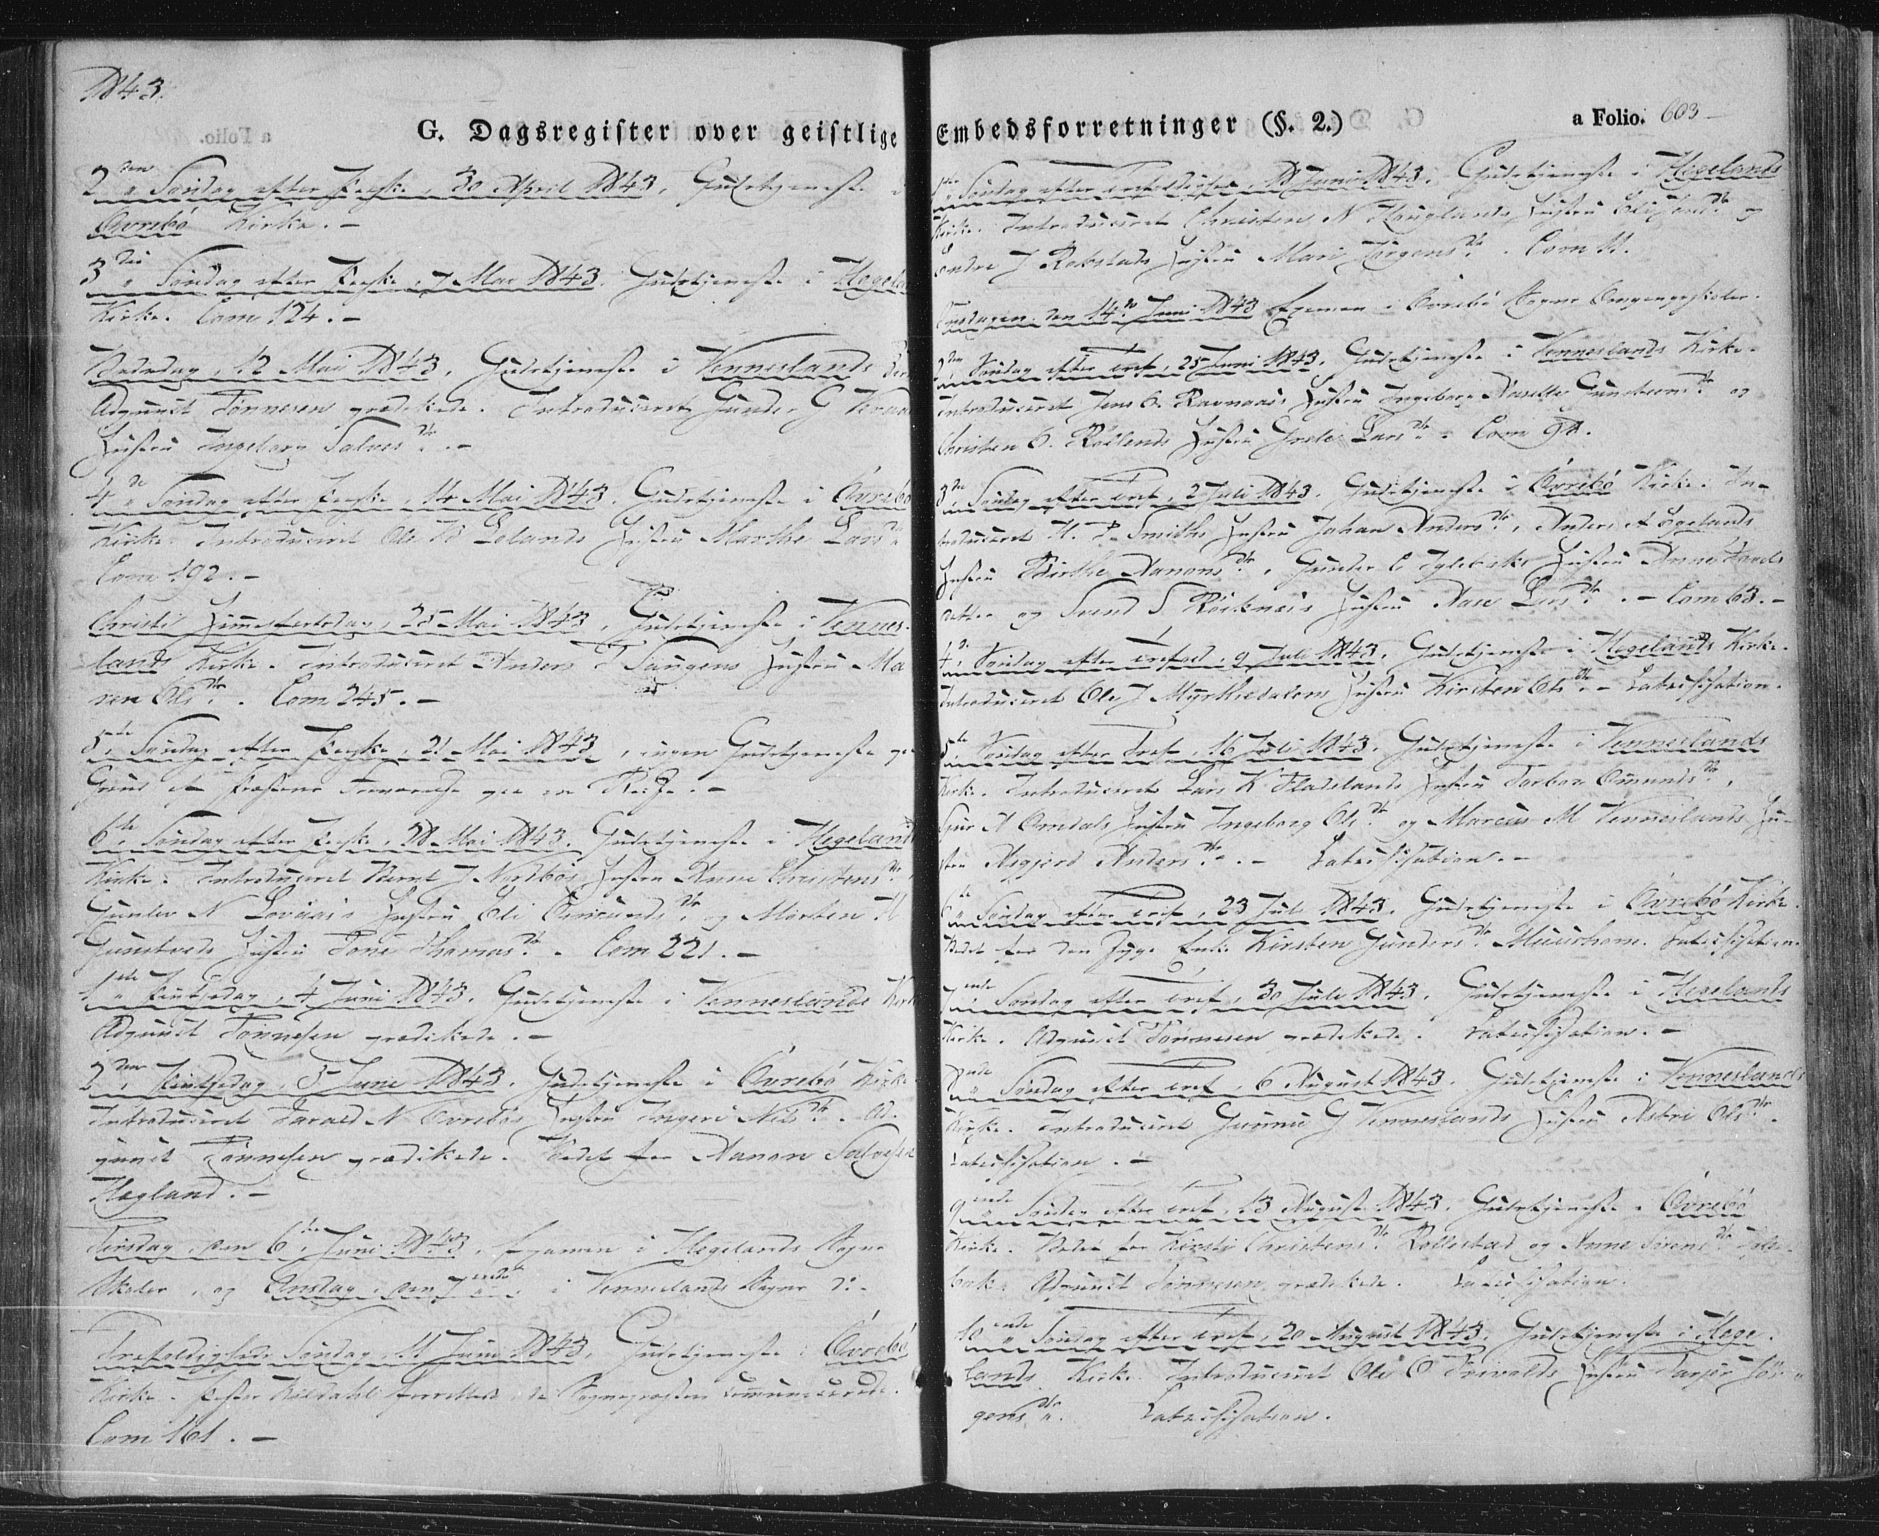 1843.
G. Dagsregister over geistlige Embedsforretninger (§. 2.)
a Folio. 603
2den Søndag efter Paaske, 30 April 1843, Gudstjeneste i
Øvrebö Kirke. –
3die Søndag efter Paaske, 7 Mai 1843. Gudstjeneste i Hegelands
Kirke. Com 124. –
Bededag, 12 Mai 1843. Gudstjeneste i Venneslands
Adjunct Tönnesen prædikede. Introduceret Gunder G
Hustru Ingeborg Salves Dtr. –
4de Søndag efter Paaske, 14 Mai 1843. Gudstjeneste i Øvrebö
Kirke. Introduceret Ole Lelands Hustru Marthe Lars Dtr
Com 192. –
Christi Himmelfartsdag, 25 Mai 1843, Gudstjeneste i Vennes-
lands Kirke. Introduceret Anders T Haugens Hustru Ma
ren Ols Dtr. Com 245. –
5te Søndag efter Paaske, 21 Mai 1843, ingen Gudstjeneste paa
Grund af Præstens Fraværelse paa en Reise. –
6te Søndag efter Paaske, 28 Mai 1843. Gudstjeneste i Hegelands
Kirke. Introduceret Bernt J Hustru Anne Christens Dtr,
Gunlev N Lovaas's Hustru Eli Omunds Dtr og Morten H
Hustru Tone Thomas Dtr. Com 221. –
1ste Pintsedag, 4 Juni 1843. Gudstjeneste i Venneslands Kirke
Adjunct Tönnesen prædikede. –
2den Pintsedag, 5 Juni 1843. Gudstjeneste i Øvrebö Kirke
Introduceret Tarald N Øvrebös Hustru Ingeri Nils Dtr. Ad-
junct Tönnesen prædikede. Bedet for Aanon Salvesen
Hægland. –
Tirsdag den 6te Juni 1843. Examen i Hegelands Sogns
Skoler, og Onsdag den 7ende i Venneslands Sogn d:
Trefoldigheds Søndag, 11 Juni 1843, Gudstjeneste i Øvrebö
Kirke. Pastor Kildahl forrettede, da Sognepræsten communicerede.
Com 161. –
1ste Søndag efter Trefoldighed, 18 Juni 1843. Gudstjeneste i Hegelands
Kirke. Introduceret Christen N Houglands Hustru Eli Dtr og
Endre J Robstads Hustru Mari Jörgens Dtr. Com 11.
Onsdagen den 14de Juni 1843 Examen i Øvrebö Sogns Omgangsskoler.
2den Søndag efter Tref, 25 Juni 1843. Gudstjeneste i Venneslands Kirke.
Introduceret Jens O. Ravnaas's Hustru Ingeborg Gundersens Dtr og
Christen O. Röllends Hustru Grete Lars Dtr. Com 94.
3de Søndag efter Tref, 2 Juli 1843. Gudstjeneste i Øvrebö Kirke. In-
troduceret H. P. Smiths Hustru Johan Anders Dtr, Anders A Egelands
Hustru Birthe Aanons Dtr, Gunder C Iglebæks Hustru Anne Tands
datter og Svend S Röiknæs Hustru Aase Lars Dtr. – Com 63. –
4de Søndag efter Trefold, 9 Juli 1843. Gudstjeneste i Hegelands Kirke.
Introduceret Ole J Myrkhedalens Hustru Kirsten Ols Dtr – Catechisation.
5te Søndag efter Tref, 16 Juli 1843. Gudstjeneste i Venneslands
Kirke. Introduceret Lars K Fladelands Hustru Torbor Omunds Dtr,
Siur N Omdals Hustru Ingeborg Ols Dtr og Marcus M Venneslands Hu-
stru Asgjerd Anders Dtr. – Catechisation. –
6te Søndag efter Tref, 23 Juli 1843. Gudstjeneste i Øvrebö Kirke.
Bedet for den syge Enke Kirsten Gunders Dtr Muusehom. Catechisation.
7ende Søndag efter Tref, 30 Juli 1843. Gudstjeneste i Hegelands
Kirke. Adjunct Tönnesen prædikede. Catechisation. –
8ende Søndag efter Tref, 6 August 1843. Gudstjeneste i Venneslands
Kirke. Introduceret Gunne G Venneslands Hustru Asbri Ols Dtr.
Catechisation. –
9ende Søndag efter Tref, 13 August 1843. Gudstjeneste i Øvrebö
Kirke. Bedet for Kirsti Christens Dtr Rollestad og Anne Sörens Dtr Igle-
bæk. Adjunct Tönnesen prædikede. Catechisation.
10ende Søndag efter Tref, 20 August 1843. Gudstjeneste i Hege-
lands Kirke. Introduceret Ole O Hustru Tarjer Jör-
gens Dtr. Catechisation.